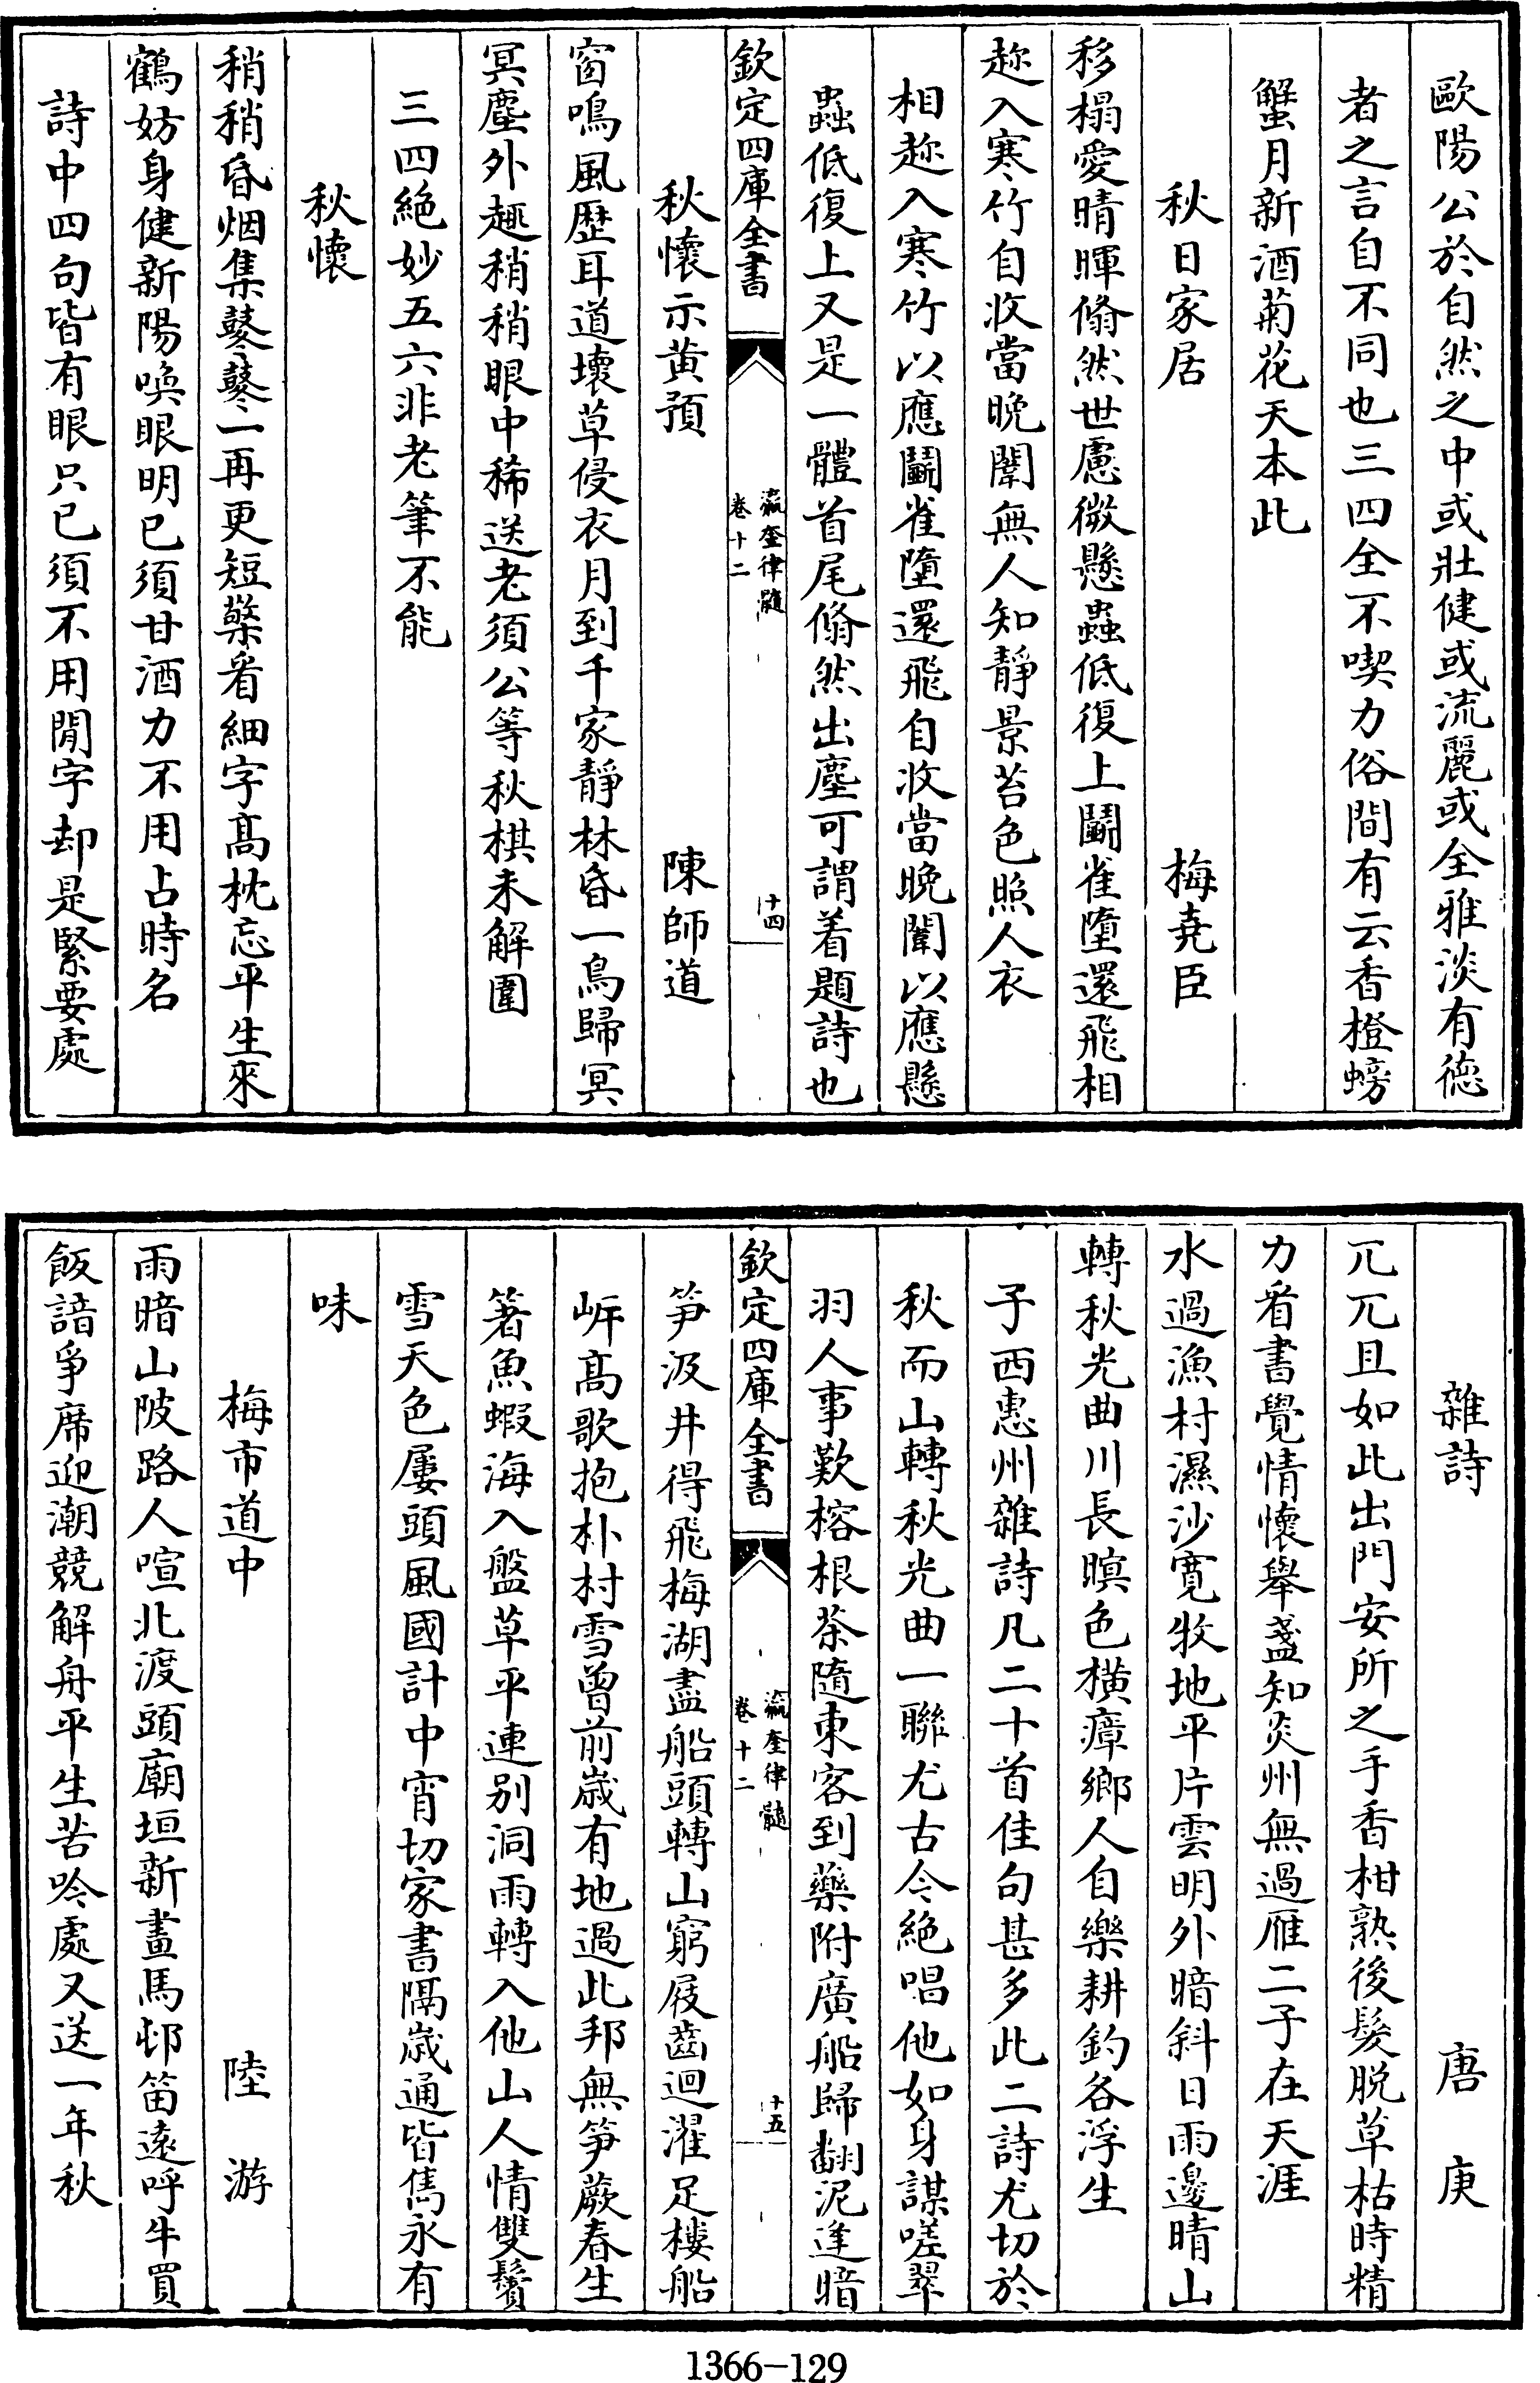 歐陽公於自然之中或壯健或流麗或全雅淡有徳
者之言自不同也三四全不喫力俗間有云香橙螃
蟹月新酒菊花天本此
秋日家居　梅堯臣
移榻愛晴暉翛然世慮微懸蟲低復上鬭雀墮還飛相
趂入寒竹自收當晚闈無人知靜景苔色照人衣
相趂入寒竹以應鬭雀墮還飛自收當晚闈以應懸
蟲低復上又是一體首尾翛然出塵可謂着題詩也
欽定四庫全書
瀛奎律髓
卷十二
十四
秋懷示黄預　陳師道
窗鳴風歴耳道壞草侵衣月到千家靜林昏一鳥歸冥
冥塵外趣稍稍眼中稀送老須公等秋棋未解圍
三四絶妙五六非老筆不能
秋懷
稍稍昏烟集鼕鼕一再更短檠看細字髙枕忘平生來
鶴妨身健新陽喚眼明已須甘酒力不用占時名
詩中四句皆有眼只已須不用閒字却是緊要處
雜詩　唐庚
兀兀且如此出門安所之手香柑熟後髮脱草枯時精
力看書覺情懷舉盞知炎州無過雁二子在天涯
水過漁村濕沙寛牧地平片雲明外暗斜日雨邊晴山
轉秋光曲川長暝色横瘴鄉人自樂耕釣各浮生
子西惠州雜詩凡二十首佳句甚多此二詩尤切於
秋而山轉秋光曲一聯尤古今絶唱他如身謀嗟翠
羽人事歎榕根茶隨東客到藥附廣船歸翻泥逢暗
欽定四庫全書
瀛奎律髓
卷十二
十五
笋汲井得飛梅湖盡船頭轉山窮屐齒迴濯足樓船
岍髙歌抱朴村雪曾前嵗有地過此邦無笋蕨春生
箸魚蝦海入盤草平連别洞雨轉入他山人情雙鬢
雪天色屢頭風國計中宵切家書隔嵗通皆雋永有
味
梅市道中　陸游
雨暗山陂路人喧北渡頭廟垣新畫馬邨笛遠呼牛買
飯諳爭席迎潮競解舟平生苦吟處又送一年秋
1366-129